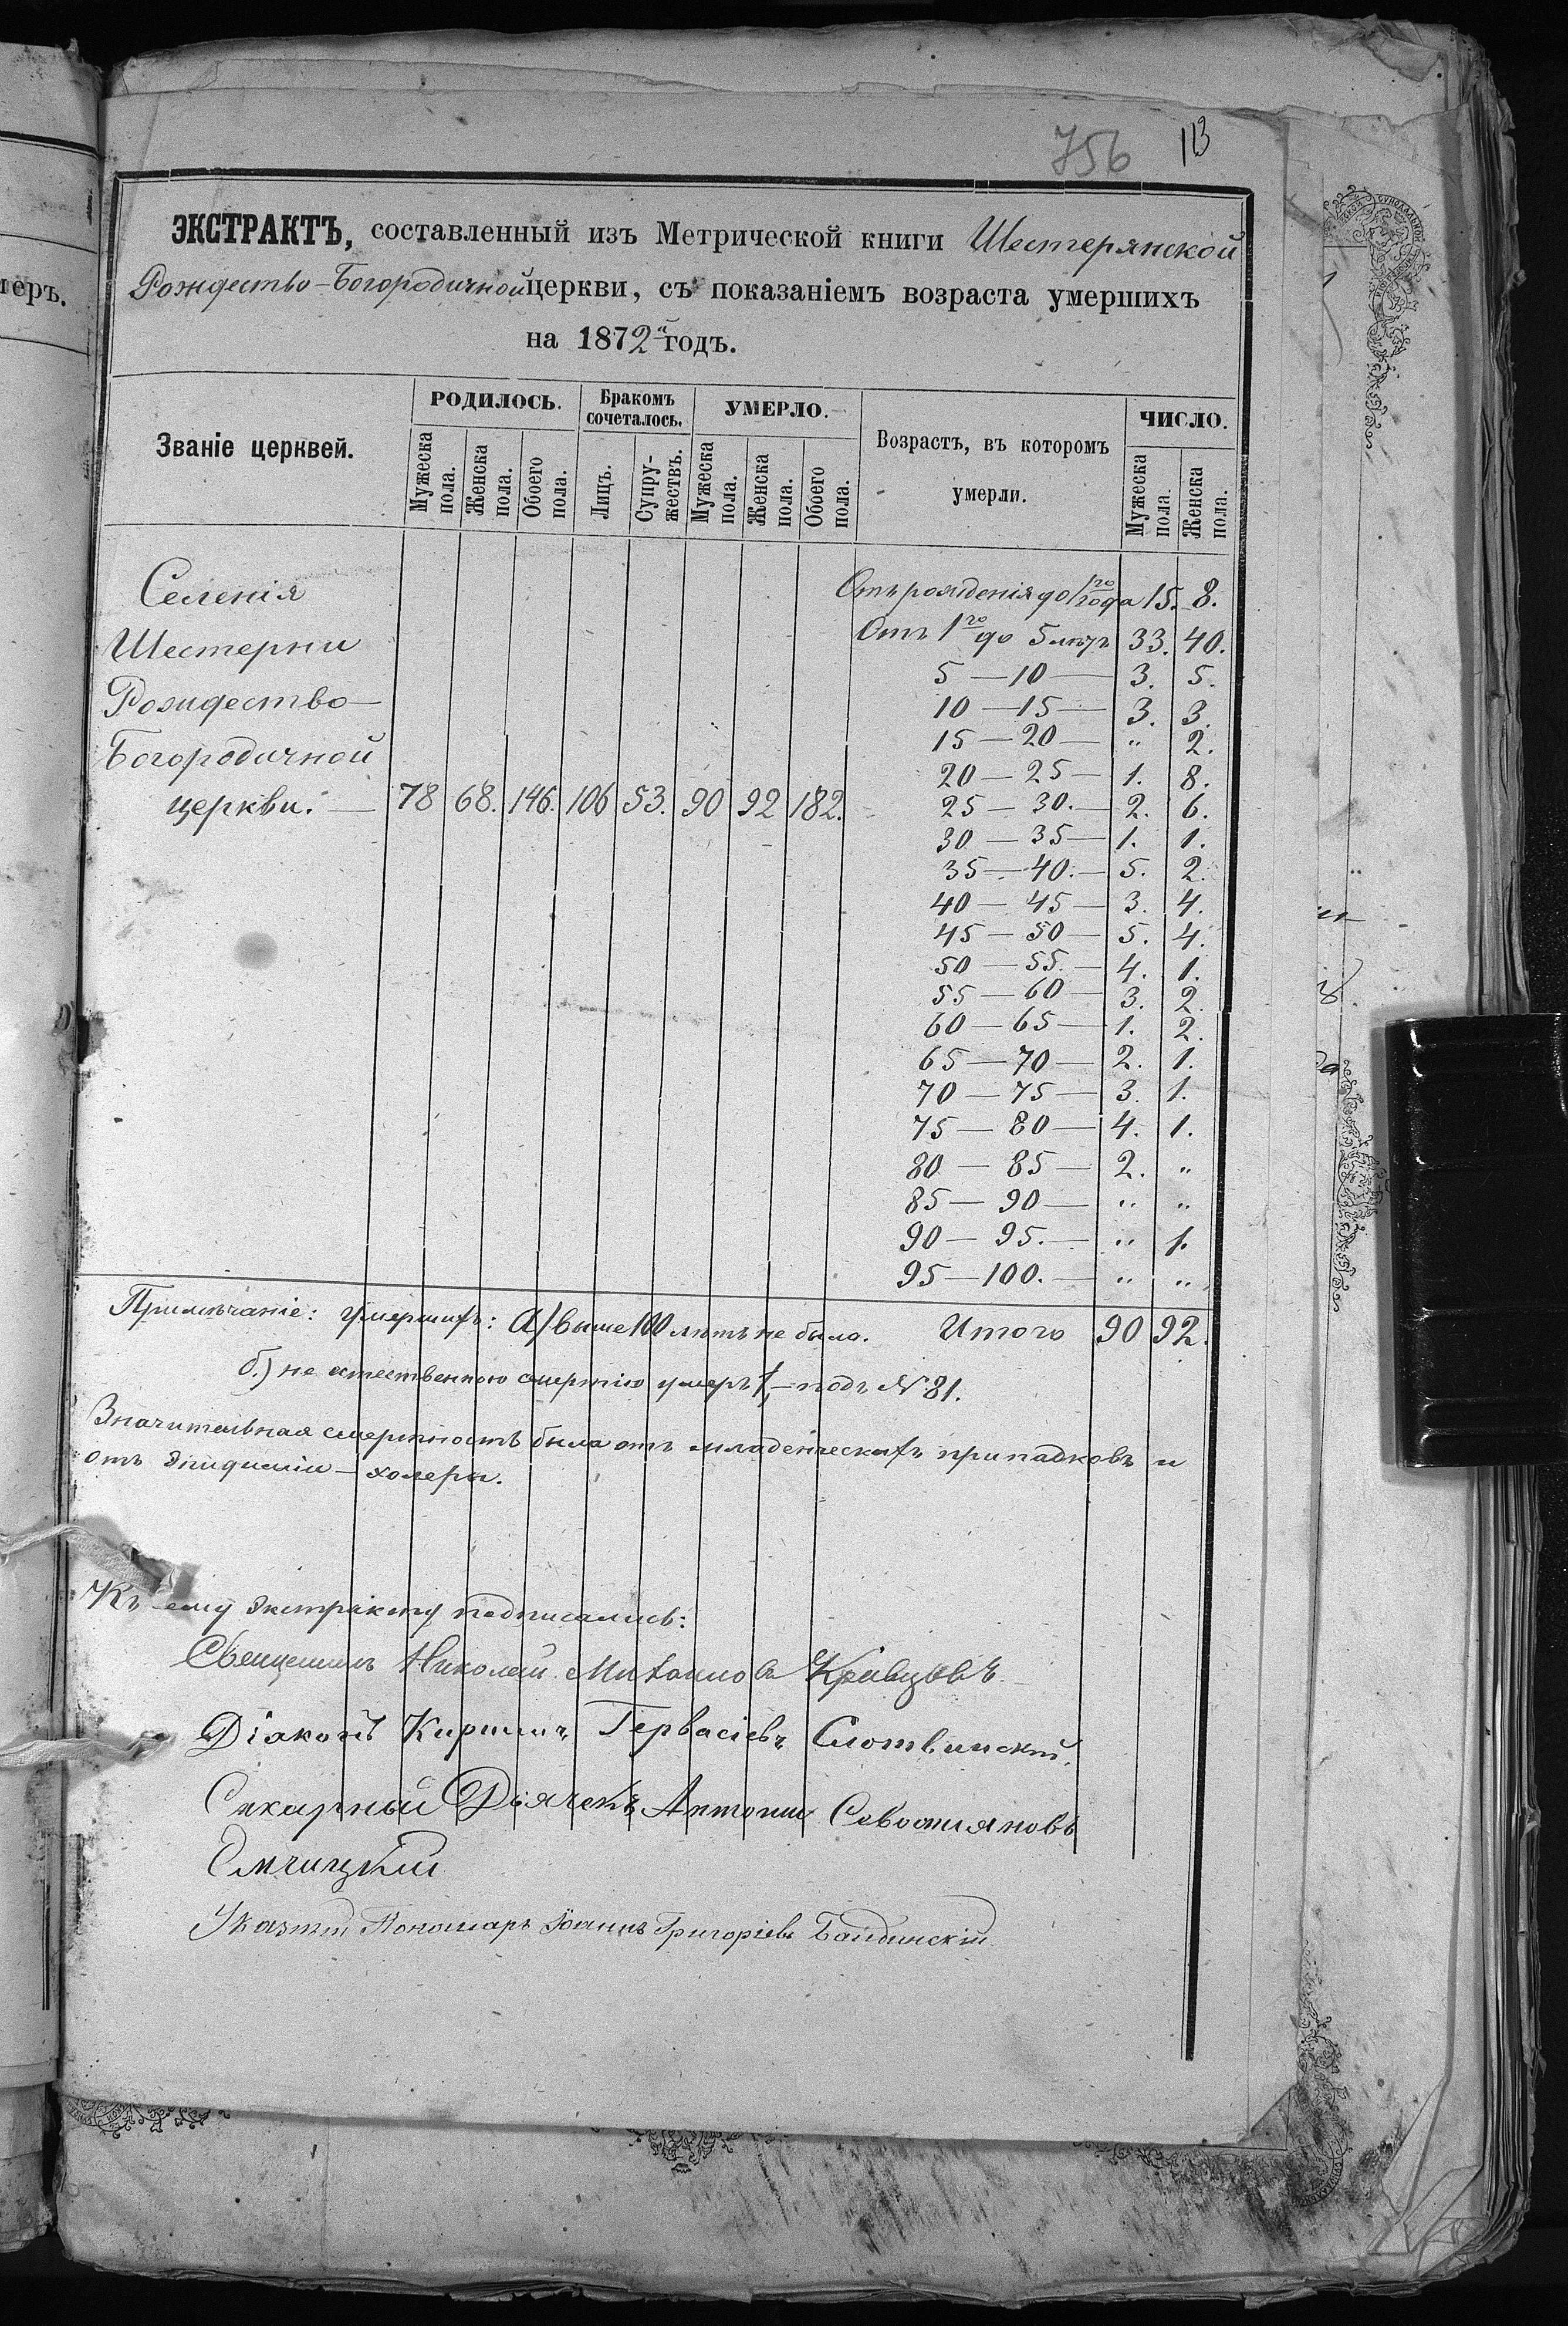 756 113
ЭКСТРАКТЪ, составленный изъ Метрической книги Шестерянской
Рождество-Богородичной церкви, съ показаніемъ возраста умершихъ
на 1872й годъ.
меръ.
Званіе церквей.
РОДИЛОСЬ.
Бракомъ сочеталось.
УМЕРЛО.
Возрастъ, въ которомъ умерли.
ЧИСЛО.
Мужеска пола. Женска пола. Обоего пола. Лицъ. Супружествъ. Мужеска пола. Женска пола. Обоего пола. Мужеска пола. Женска пола.
Селенія
Шестерни
Рождество-
Богородичной
церкви. — 78 68. 146. 106 53. 90 92 182.
Отъ рожденія до 1го года 15. 8.
Отъ 1го до 5 лѣтъ 33. 40.
5 — 10 — 3. 5.
10 — 15 — 3. 3.
15 — 20 — " 2.
20 — 25 — 1. 8.
25 — 30. — 2. 6.
30 — 35 — 1. 1.
35 — 40. — 5. 2.
40 — 45 — 3. 4.
45 — 50 — 5. 4.
50 — 55. — 4. 1.
55 — 60 — 3. 2.
60 — 65 — 1. 2.
65 — 70 — 2. 1.
70 — 75 — 3. 1.
75 — 80 — 4. 1.
80 — 85 — 2. "
85 — 90 — " "
90 — 95. — " 1.
95 — 100. — " "
Примѣчаніе: Умершихъ: а) выше 100 лѣтъ не было. Итого 90 92.
б.) не естественною смертію умеръ 1, — подъ № 81.
Значительная смертность была отъ младенческихъ припадковъ и
отъ эпидеміи — холеры.
Къ сему экстракту подписались:
Священникъ Николай Михаиловъ Кравцовъ
Діаконъ Кириллъ Гервасіевъ Слотвинскій.
Дьячекъ Антоній Севостіяновъ
Указный Пономарь Іоаннъ Григоріевъ Байдинскій